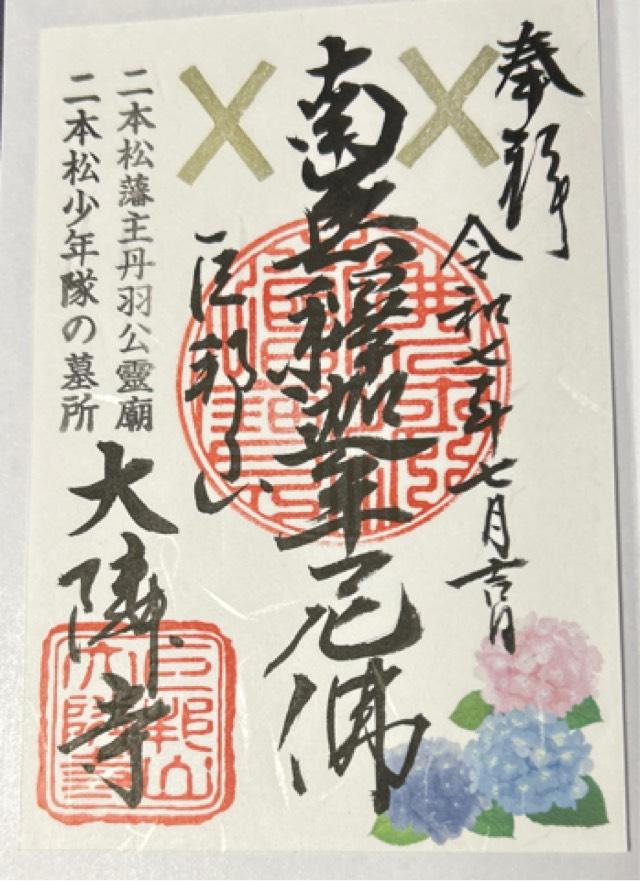 奉拝
令和七年七月吉日
南無釋迦牟尼佛
巨邦山
二本松藩主丹羽公霊廟
二本松少年隊の墓所
大隣寺